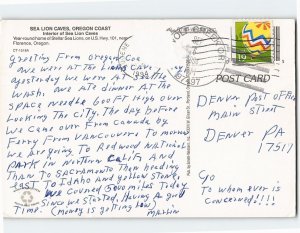 SEA LION CAVES, OREGON COAST
Interior of Sea Lion Caves
Year-round home of Stellar Sea Lions, on U.S. Hwy. 101, near
Florence, Oregon.
Greeting From Oregon
We were AT the Lion Cave
yesterday We were AT Seattle
WASH. We ATE dinner AT the
SPACE needle 600 FT High over
Looking The City. The day before
We came over From Canada by
Ferry From VANCOUVER To
We are going To Redwood National
PARK in Northern Calif And
Than To SACRAMENTO Then heading
EAST To Idaho And yellow Stone,
We Covered 5000 miles Today
Since we STARTED, Having A good
Time. (Money is getting low)
MARTIN
19
POST CARD
DENVER POST Office
MAIN STREET
DENVER PA
17517
Go
To whom ever is
Concerned!!!!